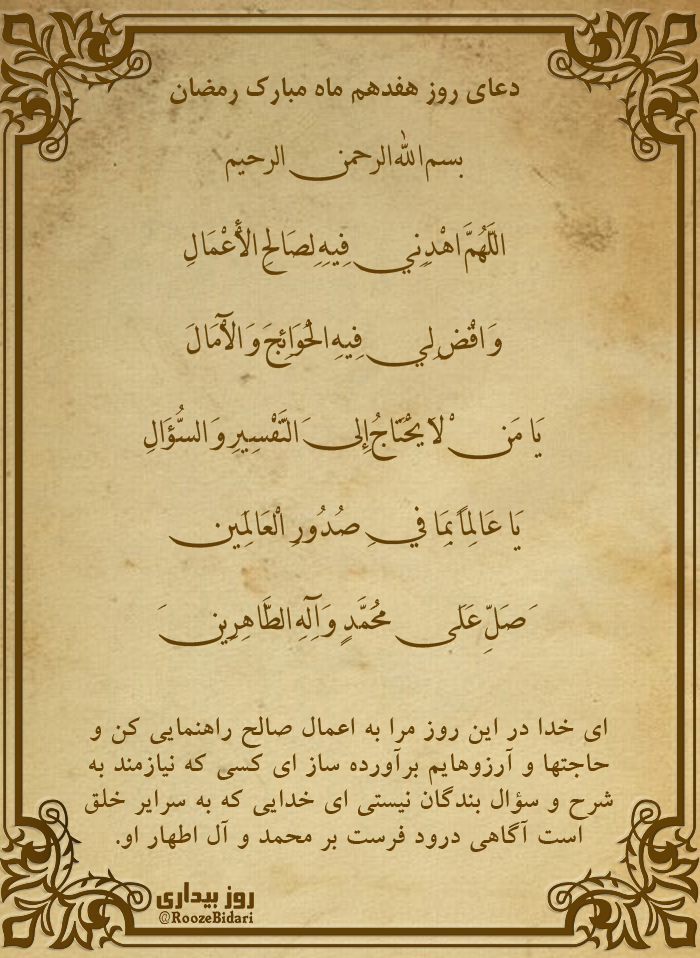 دعای روز هفدهم ماه مبارک رمضان
بسم الله الرحمن الرحیم
اللَّهُمَّ اهْدِنِي فِيهِ لِصَالِحِ الأَعْمَالِ
وَ اقْضِ لِي فِيهِ الْحَوَائِجَ وَ الْآمَالَ
يَا مَنْ لاَ يَحْتَاجُ إِلَى التَّفْسِيرِ وَ السُّؤَالِ
يَا عَالِماً بِمَا فِي صُدُورِ الْعَالَمِين
صَلِّ عَلَى مُحَمَّدٍ وَ آلِهِ الطَّاهِرِينَ
ای خدا در این روز مرا به اعمال صالح راهنمایی کن و
حاجتها و آرزوهایم برآورده ساز ای کسی که نیازمند به
شرح و سؤال بندگان نیستی ای خدایی که به سرایر خلق
است آگاهی درود فرست بر محمد و آل اطهار او.
روز بیداری
@RoozeBidari